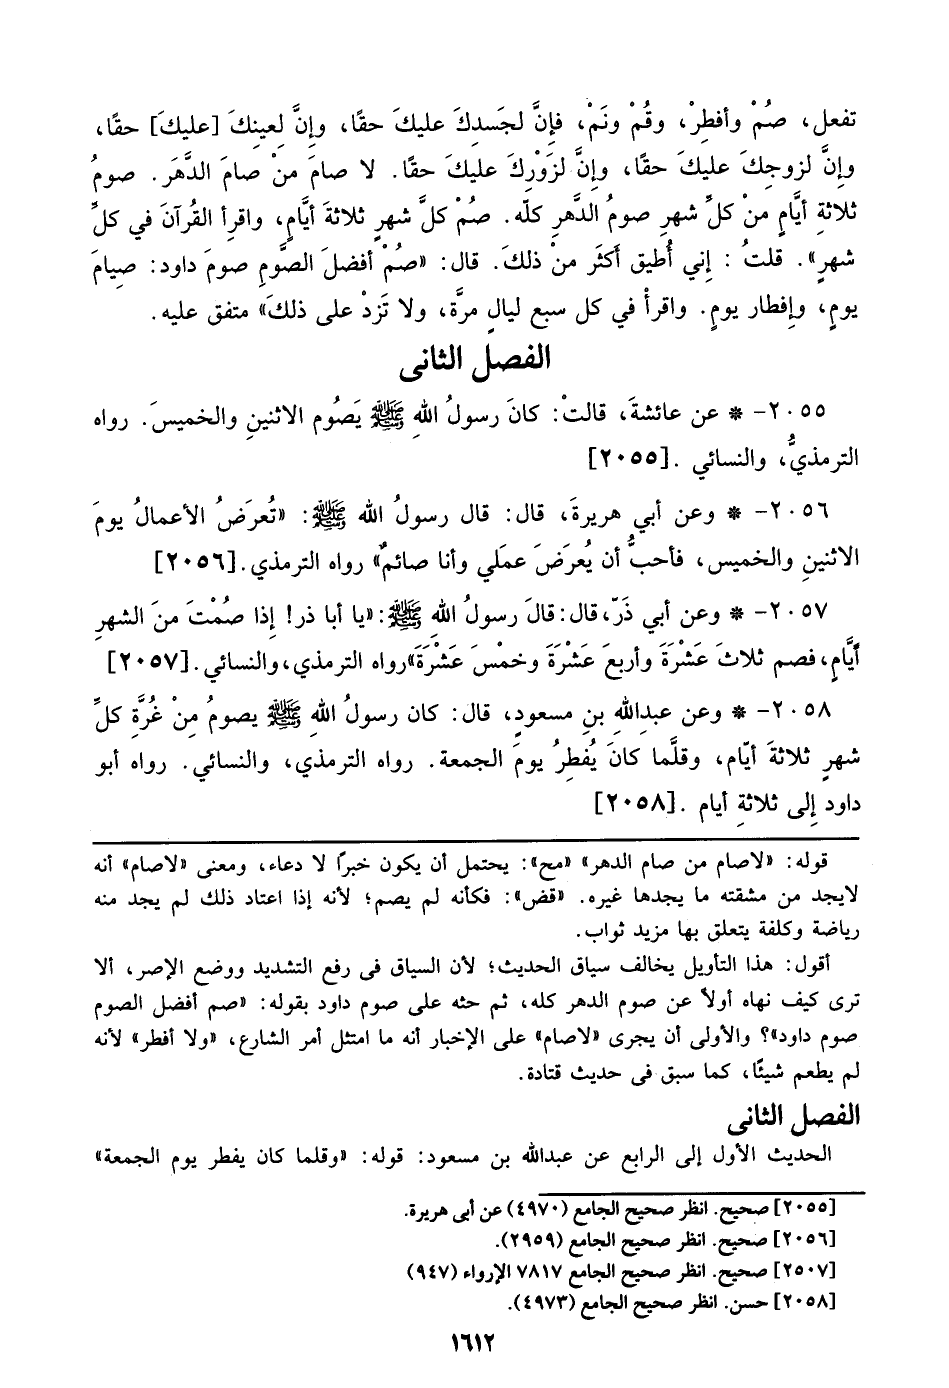 تفعل، صُمْ وأفطِرْ، وقُمْ ونَمْ، فإنَّ لجَسدِكَ عليكَ حقًا، وإنَّ لعينكَ [عليكَ] حقًا،
وإنَّ لزوجِكَ عليكَ حقًا، وإنَّ لزَوْرِكَ عليكَ حقًا. لا صامَ منْ صامَ الدَّهرَ. صومُ
ثلاثةِ أيَّامٍ منْ كلِّ شهرٍ صومُ الدَّهرِ كلّه. صُمْ كلَّ شهرٍ ثلاثةَ أيَّامٍ، واقرأِ القُرآنَ في كلِّ
شهرٍ». قلتُ : إني أُطيق أكثَر منْ ذلكَ. قال: «صُمْ أفضلَ الصَّومِ صومَ داود: صيامَ
يومٍ، وإفطار يومٍ. واقرأْ في كل سبع ليالٍ مرَّة، ولا تَزدْ على ذلكَ» متفق عليه.
الفصل الثانى
٢٠٥٥- * عن عائشةَ، قالتْ: كانَ رسولُ اللهِ ﷺ يَصُوم الاثنينِ والخميسَ. رواه
الترمذيُّ، والنسائي .[٢٠٥٥]
٢٠٥٦- * وعن أبي هريرةَ، قال: قال رسولُ الله ﷺ: «تُعرَضُ الأعمالُ يومَ
الاثنينِ والخميس، فأحبُّ أن يُعرَضَ عمَلي وأنا صائمٌ» رواه الترمذي.[٢٠٥٦]
٢٠٥٧- * وعن أبي ذَرّ، قال: قالَ رسولُ اللهِ ﷺ:«يا أبا ذر! إذا صُمْتَ منَ الشهرِ
أيَّامٍ، فصم ثلاثَ عَشْرَةَ وأربعَ عَشْرَةَ وخمْسَ عَشْرَةَ»رواه الترمذي، والنسائي.[٢٠٥٧]
٢٠٥٨- * وعن عبداللهِ بنِ مسعودٍ، قال: كان رسولُ اللهِ ﷺ يصومُ مِنْ غُرَّةِ كلِّ
شهرٍ ثلاثةَ أيّام، وقلَّما كانَ يُفطِرُ يومَ الجمعة. رواه الترمذي، والنسائي. رواه أبو
داود إلى ثلاثةِ أيام .[٢٠٥٨]
قوله: «لاصام من صام الدهر» «مح»: يحتمل أن يكون خبرًا لا دعاء، ومعنى «لاصام» أنه
لايجد من مشقته ما يجدها غيره. «قض»: فكأنه لم يصم؛ لأنه إذا اعتاد ذلك لم يجد منه
رياضة وكلفة يتعلق بها مزيد ثواب.
أقول: هذا التأويل يخالف سياق الحديث؛ لأن السياق فى رفع التشديد ووضع الإصر، ألا
ترى كيف نهاه أولاً عن صوم الدهر كله، ثم حثه على صوم داود بقوله: «صم أفضل الصوم
صوم داود»؟ والأولى أن يجرى «لاصام» على الإخبار أنه ما امتثل أمر الشارع، «ولا أفطر» لأنه
لم يطعم شيئًا، كما سبق فى حديث قتادة.
الفصل الثانى
الحديث الأول إلى الرابع عن عبدالله بن مسعود: قوله: «وقلما كان يفطر يوم الجمعة»
[٢٠٥٥] صحيح. انظر صحيح الجامع (٤٩٧٠) عن أبى هريرة.
[٢٠٥٦] صحيح. انظر صحيح الجامع (٢٩٥٩).
[٢٥٠٧] صحيح. انظر صحيح الجامع ٧٨١٧ الإرواء (٩٤٧)
[٢٠٥٨] حسن. انظر صحيح الجامع (٤٩٧٣).
١٦١٢